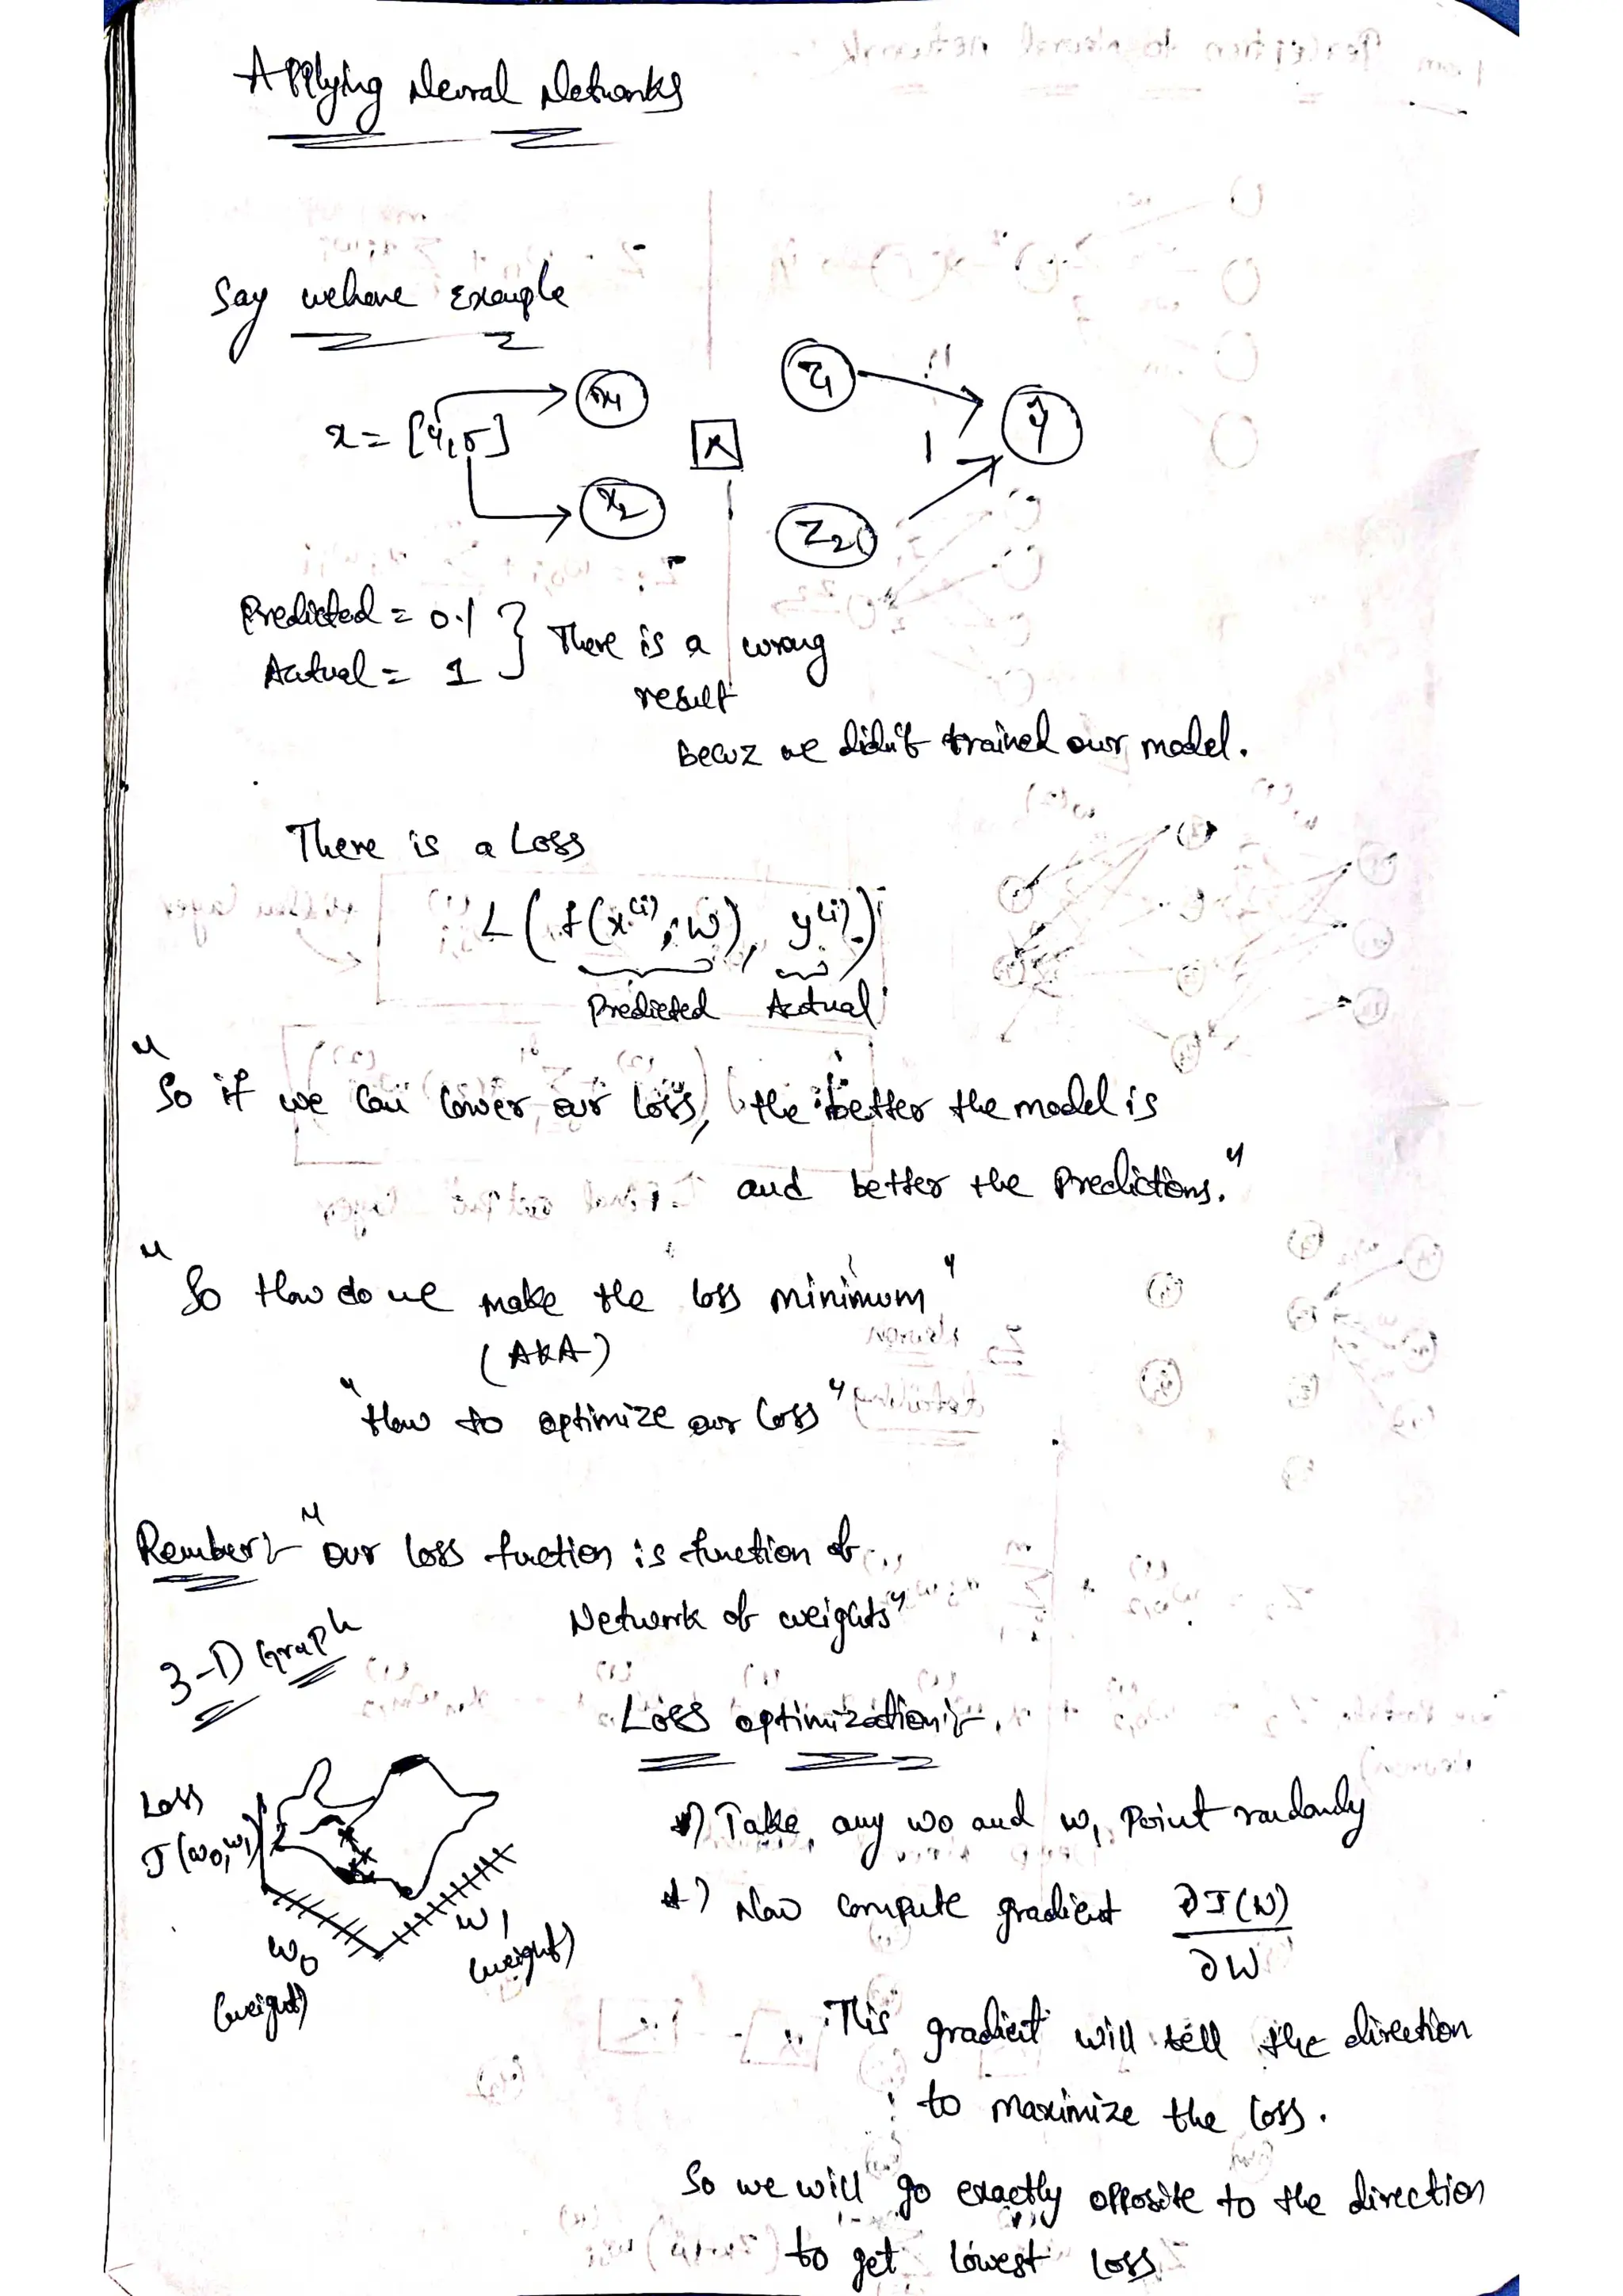 Applying Neural Networks
Say we have Example
x = [4,5]
x1
x2
z1
z2
ŷ
Predicted = 0.1
Actual = 1
} There is a wrong
result
Becuz we didn't trained our model.
There is a Loss
L ( f(x⁽ⁱ⁾; W), y⁽ⁱ⁾ )
Predicted Actual
"So if we can lower our loss, the better the model is
and better the Predictions."
"So How do we make the loss minimum"
(AKA)
"How to optimize our loss"
Rember:- "Our loss fuction is function of
Network of weights"
3-D Graph
Loss optimization:-
Loss
J(w0, w1)
w0
(weight)
w1
(weight)
*) Take any w0 and w1 Point randomly
*) Now compute gradient ∂J(W)/∂W
This gradient will tell the direction
to maximize the loss.
So we will go exactly opposite to the direction
to get lowest loss